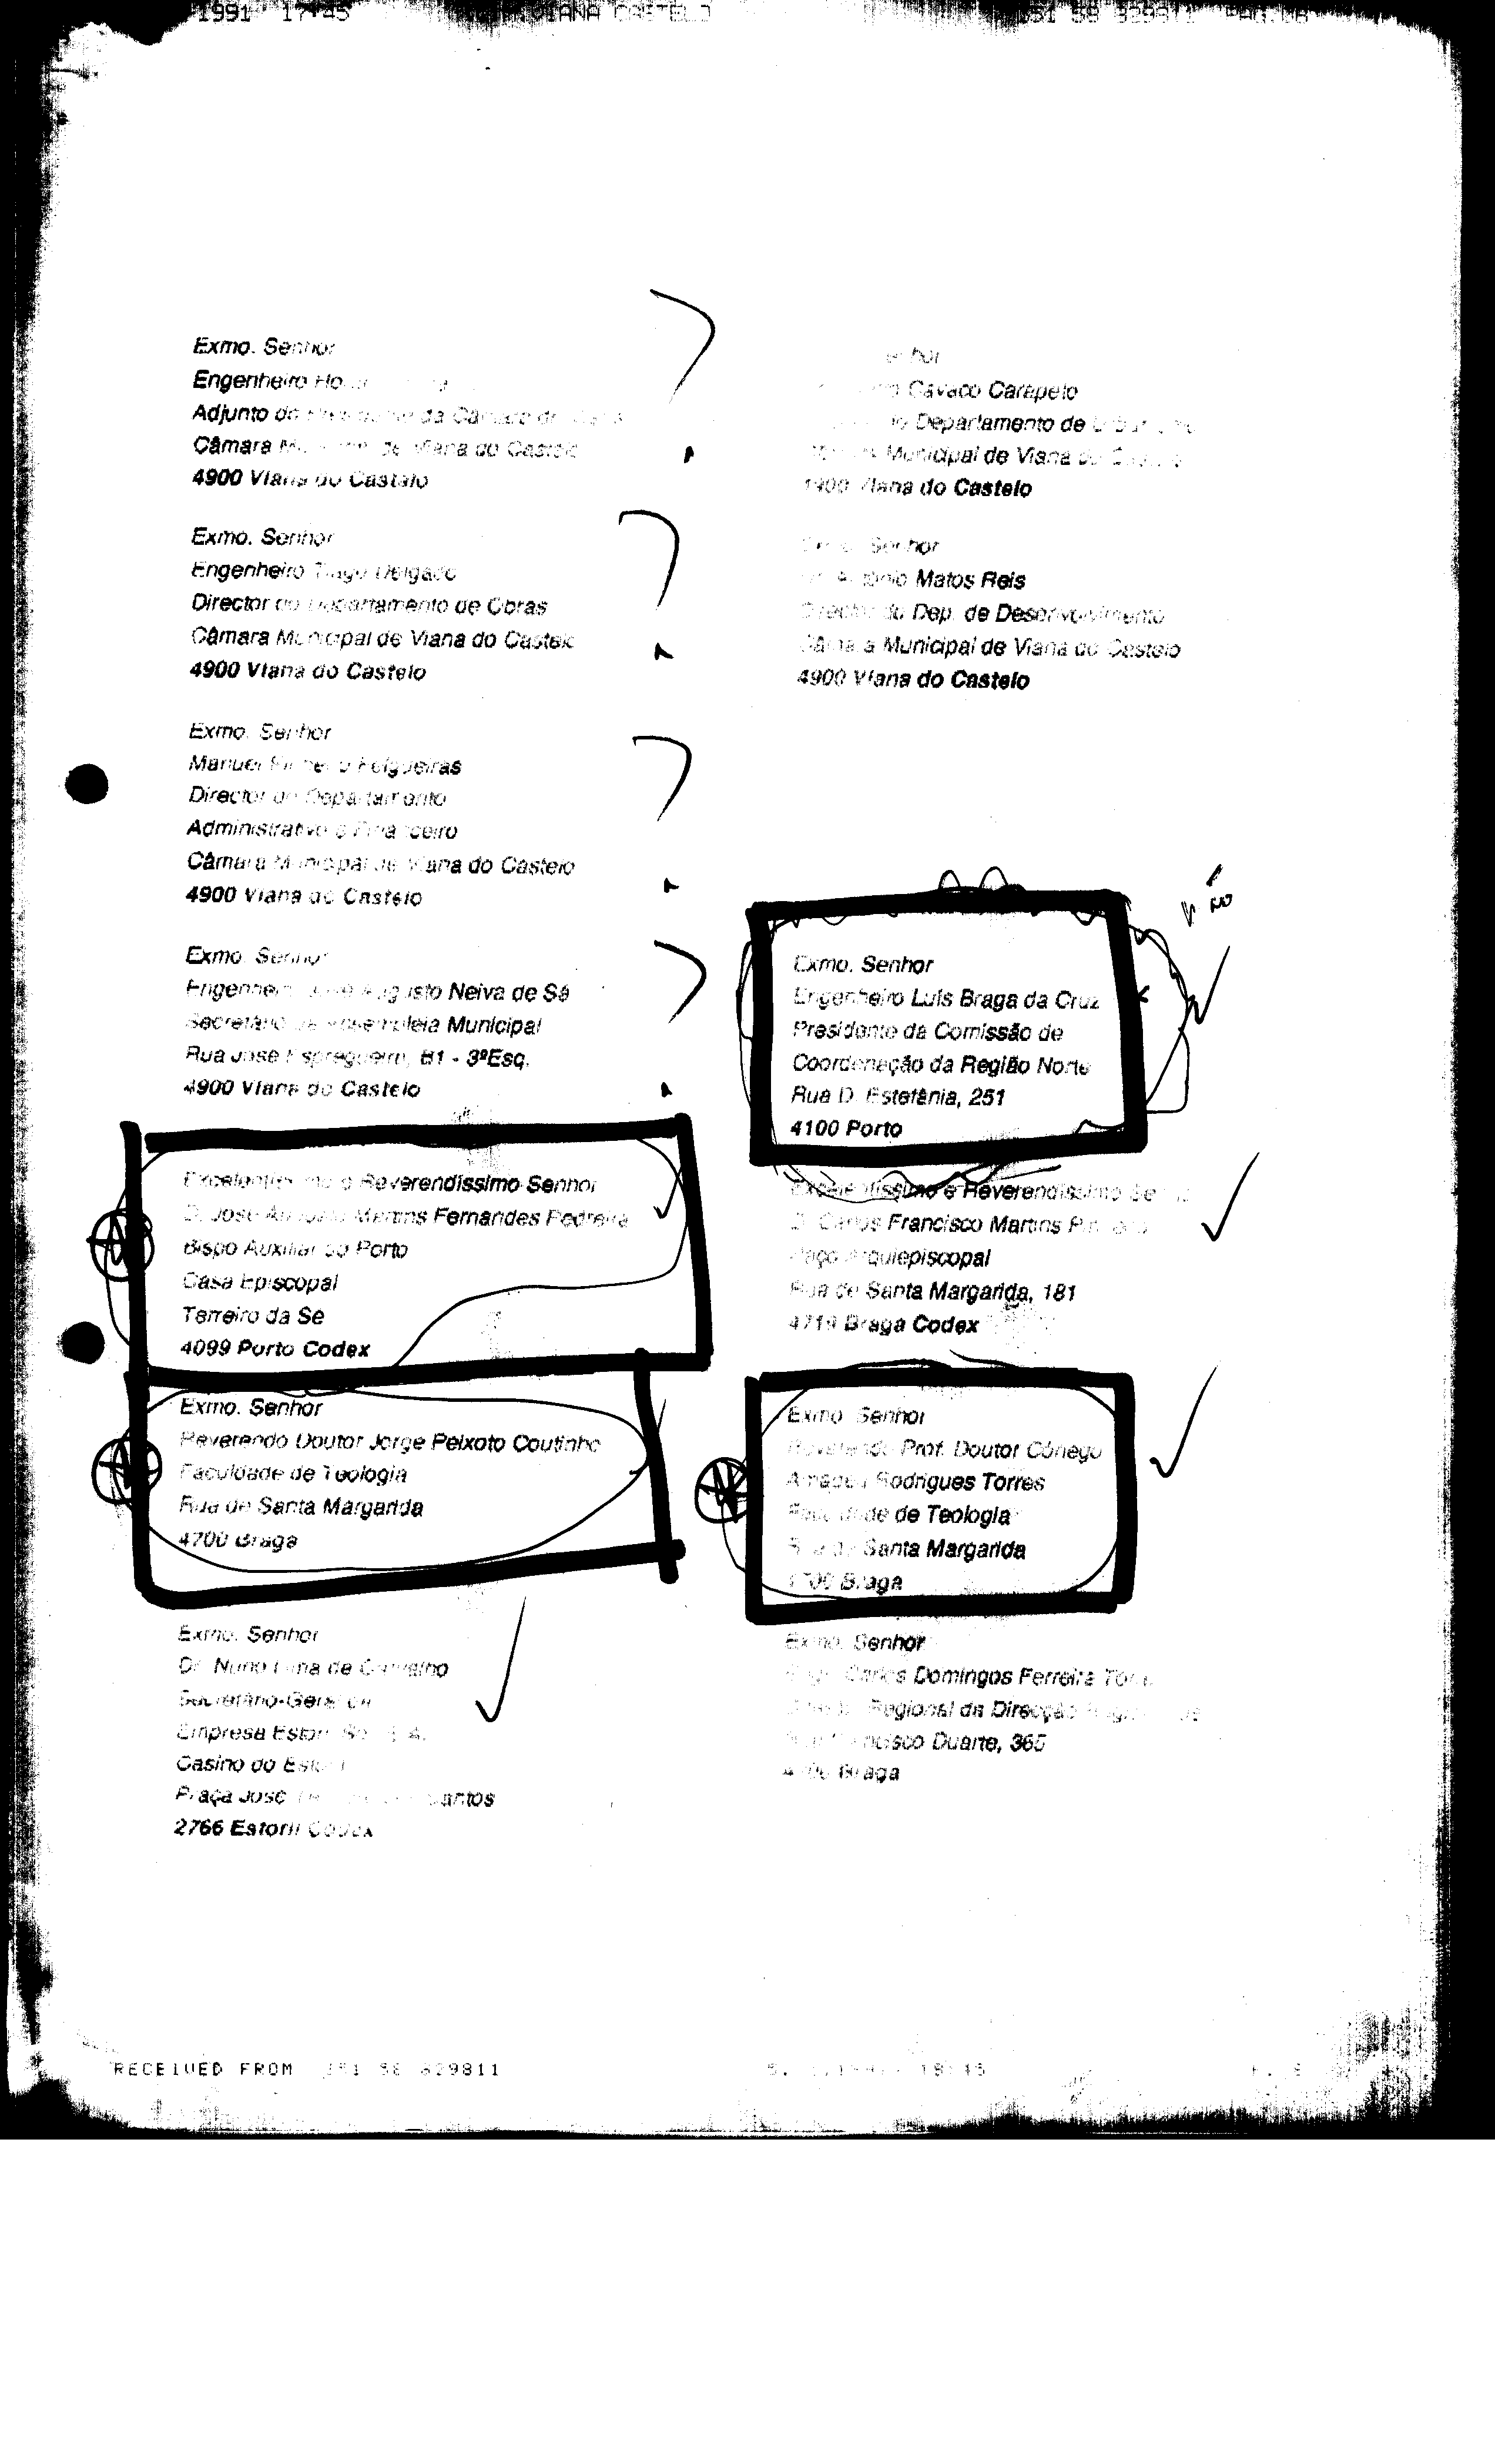 1991 17:45 VIANA CASTELO
Exmo. Senhor
Engenheiro
Adjunto do Presidente da Câmara de Viana
Câmara Municipal de Viana do Castelo
4900 Viana do Castelo
Exmo. Senhor
Engenheiro Tiago Delgado
Director do Departamento de Obras
Câmara Municipal de Viana do Castelo
4900 Viana do Castelo
Exmo. Senhor
Manuel Pinheiro Felgueiras
Director do Departamento
Administrativo e Financeiro
Câmara Municipal de Viana do Castelo
4900 Viana do Castelo
Exmo. Senhor
Engenheiro José Augusto Neiva de Sá
Secretário da Assembleia Municipal
Rua José Espregueira, 81 - 3ºEsq.
4900 Viana do Castelo
Excelentíssimo e Reverendíssimo Senhor
D. José Augusto Martins Fernandes Pedreira
Bispo Auxiliar do Porto
Casa Episcopal
Terreiro da Se
4099 Porto Codex
Exmo. Senhor
Reverendo Doutor Jorge Peixoto Coutinho
Faculdade de Teologia
Rua de Santa Margarida
4700 Braga
Exmo. Senhor
Dr. Nuno Lima de Carvalho
Secretário-Geral da
Empresa Estoril Sol, S.A.
Casino do Estoril
Praça José Teodoro dos Santos
2766 Estoril Codex
Senhor
Cavaco Carapeto
do Departamento de
Câmara Municipal de Viana do Castelo
4900 Viana do Castelo
Exmo. Senhor
Dr. António Matos Reis
Director do Dep. de Desenvolvimento
Câmara Municipal de Viana do Castelo
4900 Viana do Castelo
não
Exmo. Senhor
Engenheiro Luís Braga da Cruz
Presidente da Comissão de
Coordenação da Região Norte
Rua D. Estefânia, 251
4100 Porto
Excelentíssimo e Reverendíssimo Senhor
D. Carlos Francisco Martins Pinheiro
Paço Arquiepiscopal
Rua de Santa Margarida, 181
4719 Braga Codex
Exmo. Senhor
Reverendo Prof. Doutor Cónego
Amadeu Rodrigues Torres
Faculdade de Teologia
Rua de Santa Margarida
4700 Braga
Exmo. Senhor
Engº Carlos Domingos Ferreira
Regional da Direcção
Rua Francisco Duarte, 365
4700 Braga
RECEIVED FROM 351 58 829811